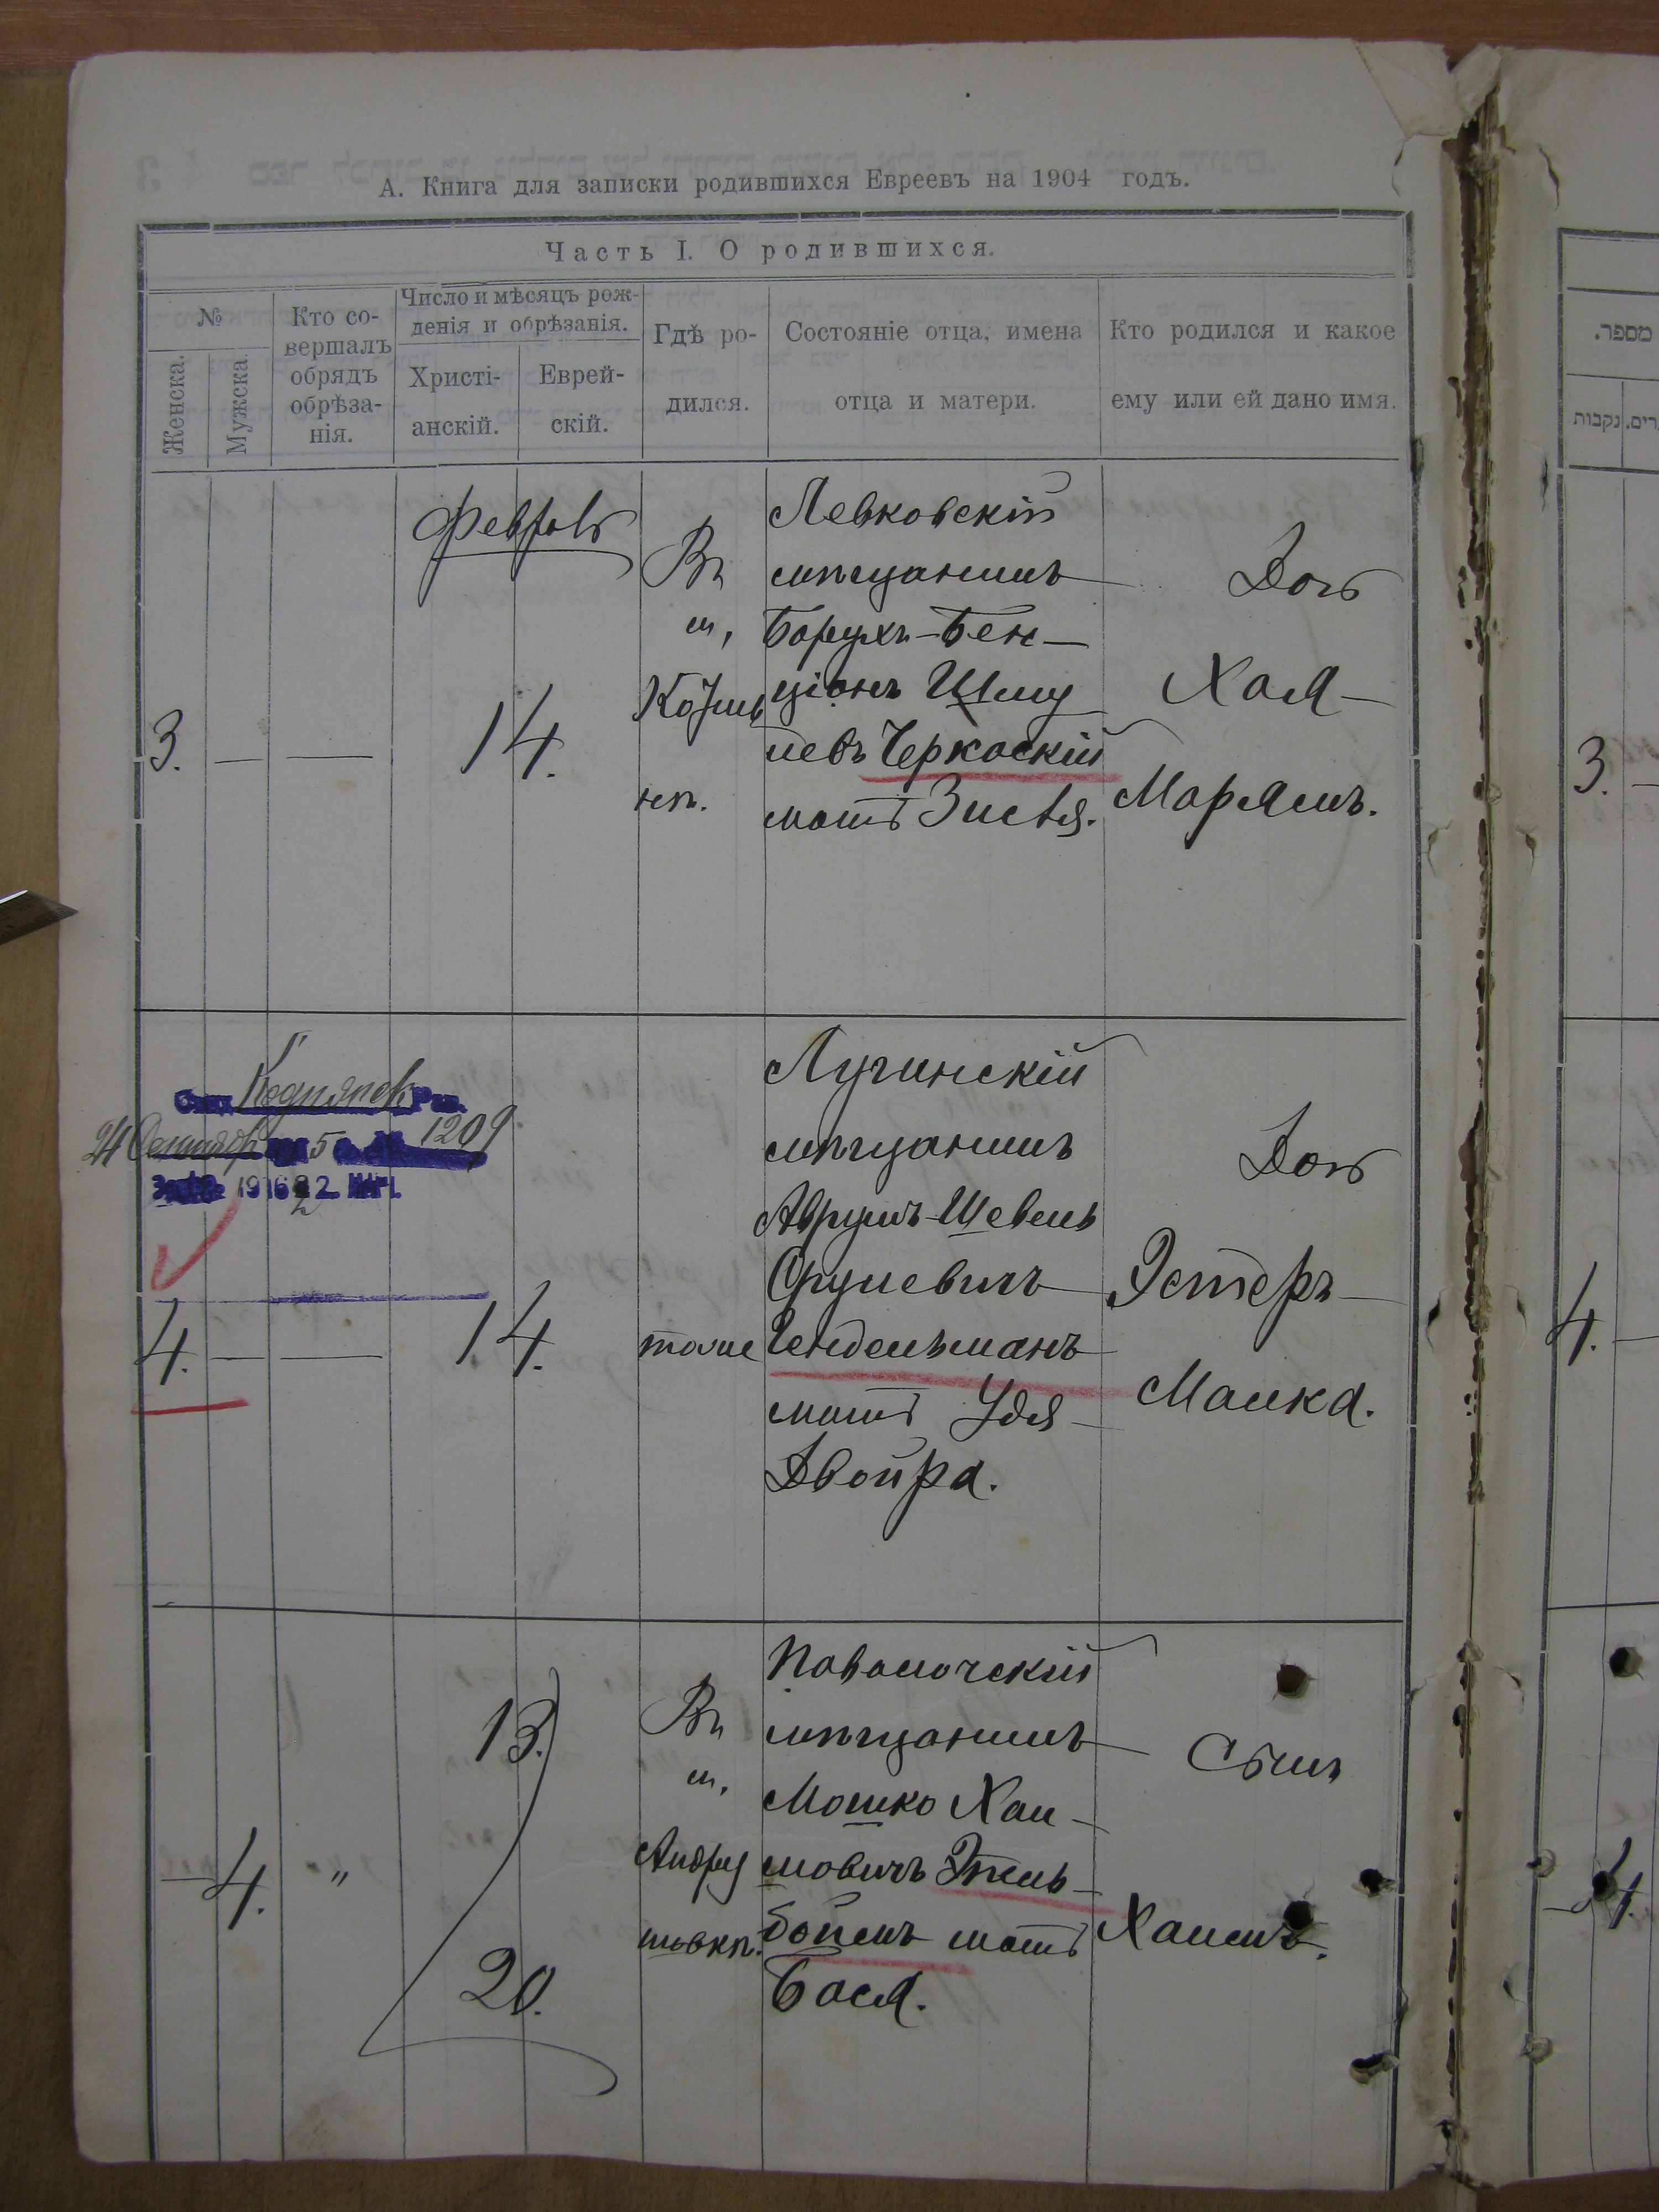 А. Книга для записки родившихся Евреевъ на 1904 годъ.
Часть I. О родившихся.
№
Женска.
Мужска.
Кто со-
вершалъ
обрядъ
обрѣза-
нія.
Число и мѣсяцъ рож-
денія и обрѣзанія.
Христі-
анскій.
Еврей-
скій.
Гдѣ ро-
дился.
Состояніе отца, имена
отца и матери.
Кто родился и какое
ему или ей дано имя.
3.
—
—
Февраль
14.
Въ
м.
Левковскій
мѣщанинъ
Борухъ-Бен-
ціонъ Шму
левъ Черкаскій
мать Зисля.
Дочь
Хая-
Марямъ.
24 1209
1916
4.
—
—
14.
тоже
Лугинскій
мѣщанинъ
Аврумъ-Шевель
Срулевичъ
Гендельманъ
мать Удя
Двойра.
Дочь
Эстеръ-
Малка.
—
4.
"
13.
20.
Въ
м.
Андру
шовкѣ.
Паволочскій
мѣщанинъ
Мошко Хаи-
мовичъ
боймъ мать
Бася.
Сынъ
מספר.
נקבות
3.
4.
4.